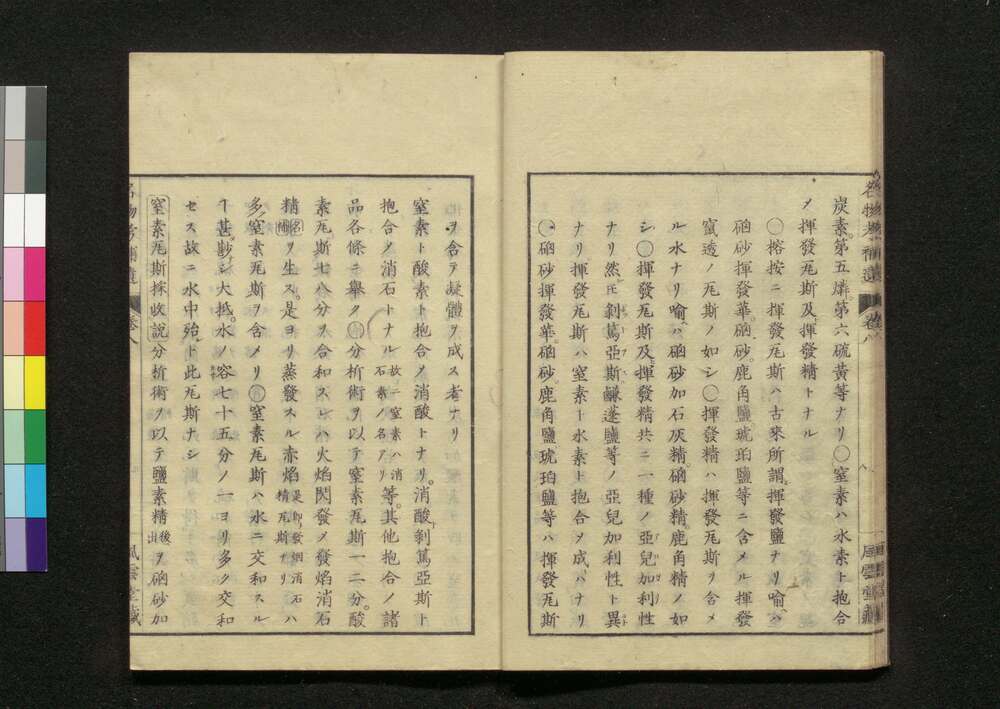 炭素第五燐第六硫黄等ナリ〇窒素ハ水素ト抱合
メ揮發瓦斯及揮發精トナル
〇榕按ニ揮發瓦斯ハ古來所謂揮發鹽ナリ喩ハ
硇砂揮發華硇砂鹿角鹽琥珀鹽等ニ含メル揮發
竄透ノ瓦斯ノ如シ〇揮發精ハ揮發瓦斯ヲ含メ
ル水ナリ喩ハ硇砂加石灰精硇砂精鹿角精ノ如
シ〇揮發瓦斯及揮發精共ニ一種ノ亞兒加利性
ナリ然𪜈剝篤亞斯鹹蓬鹽等ノ亞兒加利性ト異
ナリ揮發瓦斯ハ窒素ト水素ト抱合メ成ハナリ
〇硇砂揮發華硇砂鹿角鹽琥珀鹽等ハ揮發瓦斯
名物考補遺 卷八 風雲堂藏
ヲ含テ凝體ヲ成ス者ナリ
窒素ト酸素ト抱合メ消酸トナリ消酸剝篤亞斯ト
抱合メ消石トナル故ニ窒素ハ消石素ノ名アリ等其他抱合ノ諸
品各條ニ擧ク〇分析術ヲ以テ窒素瓦斯一二分酸
素瓦斯七八分ヲ合和スレハ火焰閃發メ發焰消石
精名稱ヲ生ス是ヨリ蒸發スル赤焰是即發烟消石精瓦斯ナリハ
多窒素瓦斯ヲ含メリ〇窒素瓦斯ハ水ニ交和スル
ヿ甚尠シ大抵水ノ容七十五分ノ一ヨリ多ク交和
セス故ニ水中殆ト此瓦斯ナシ
窒素瓦斯採收説分析術ヲ以テ鹽素精後出ヲ硇砂加